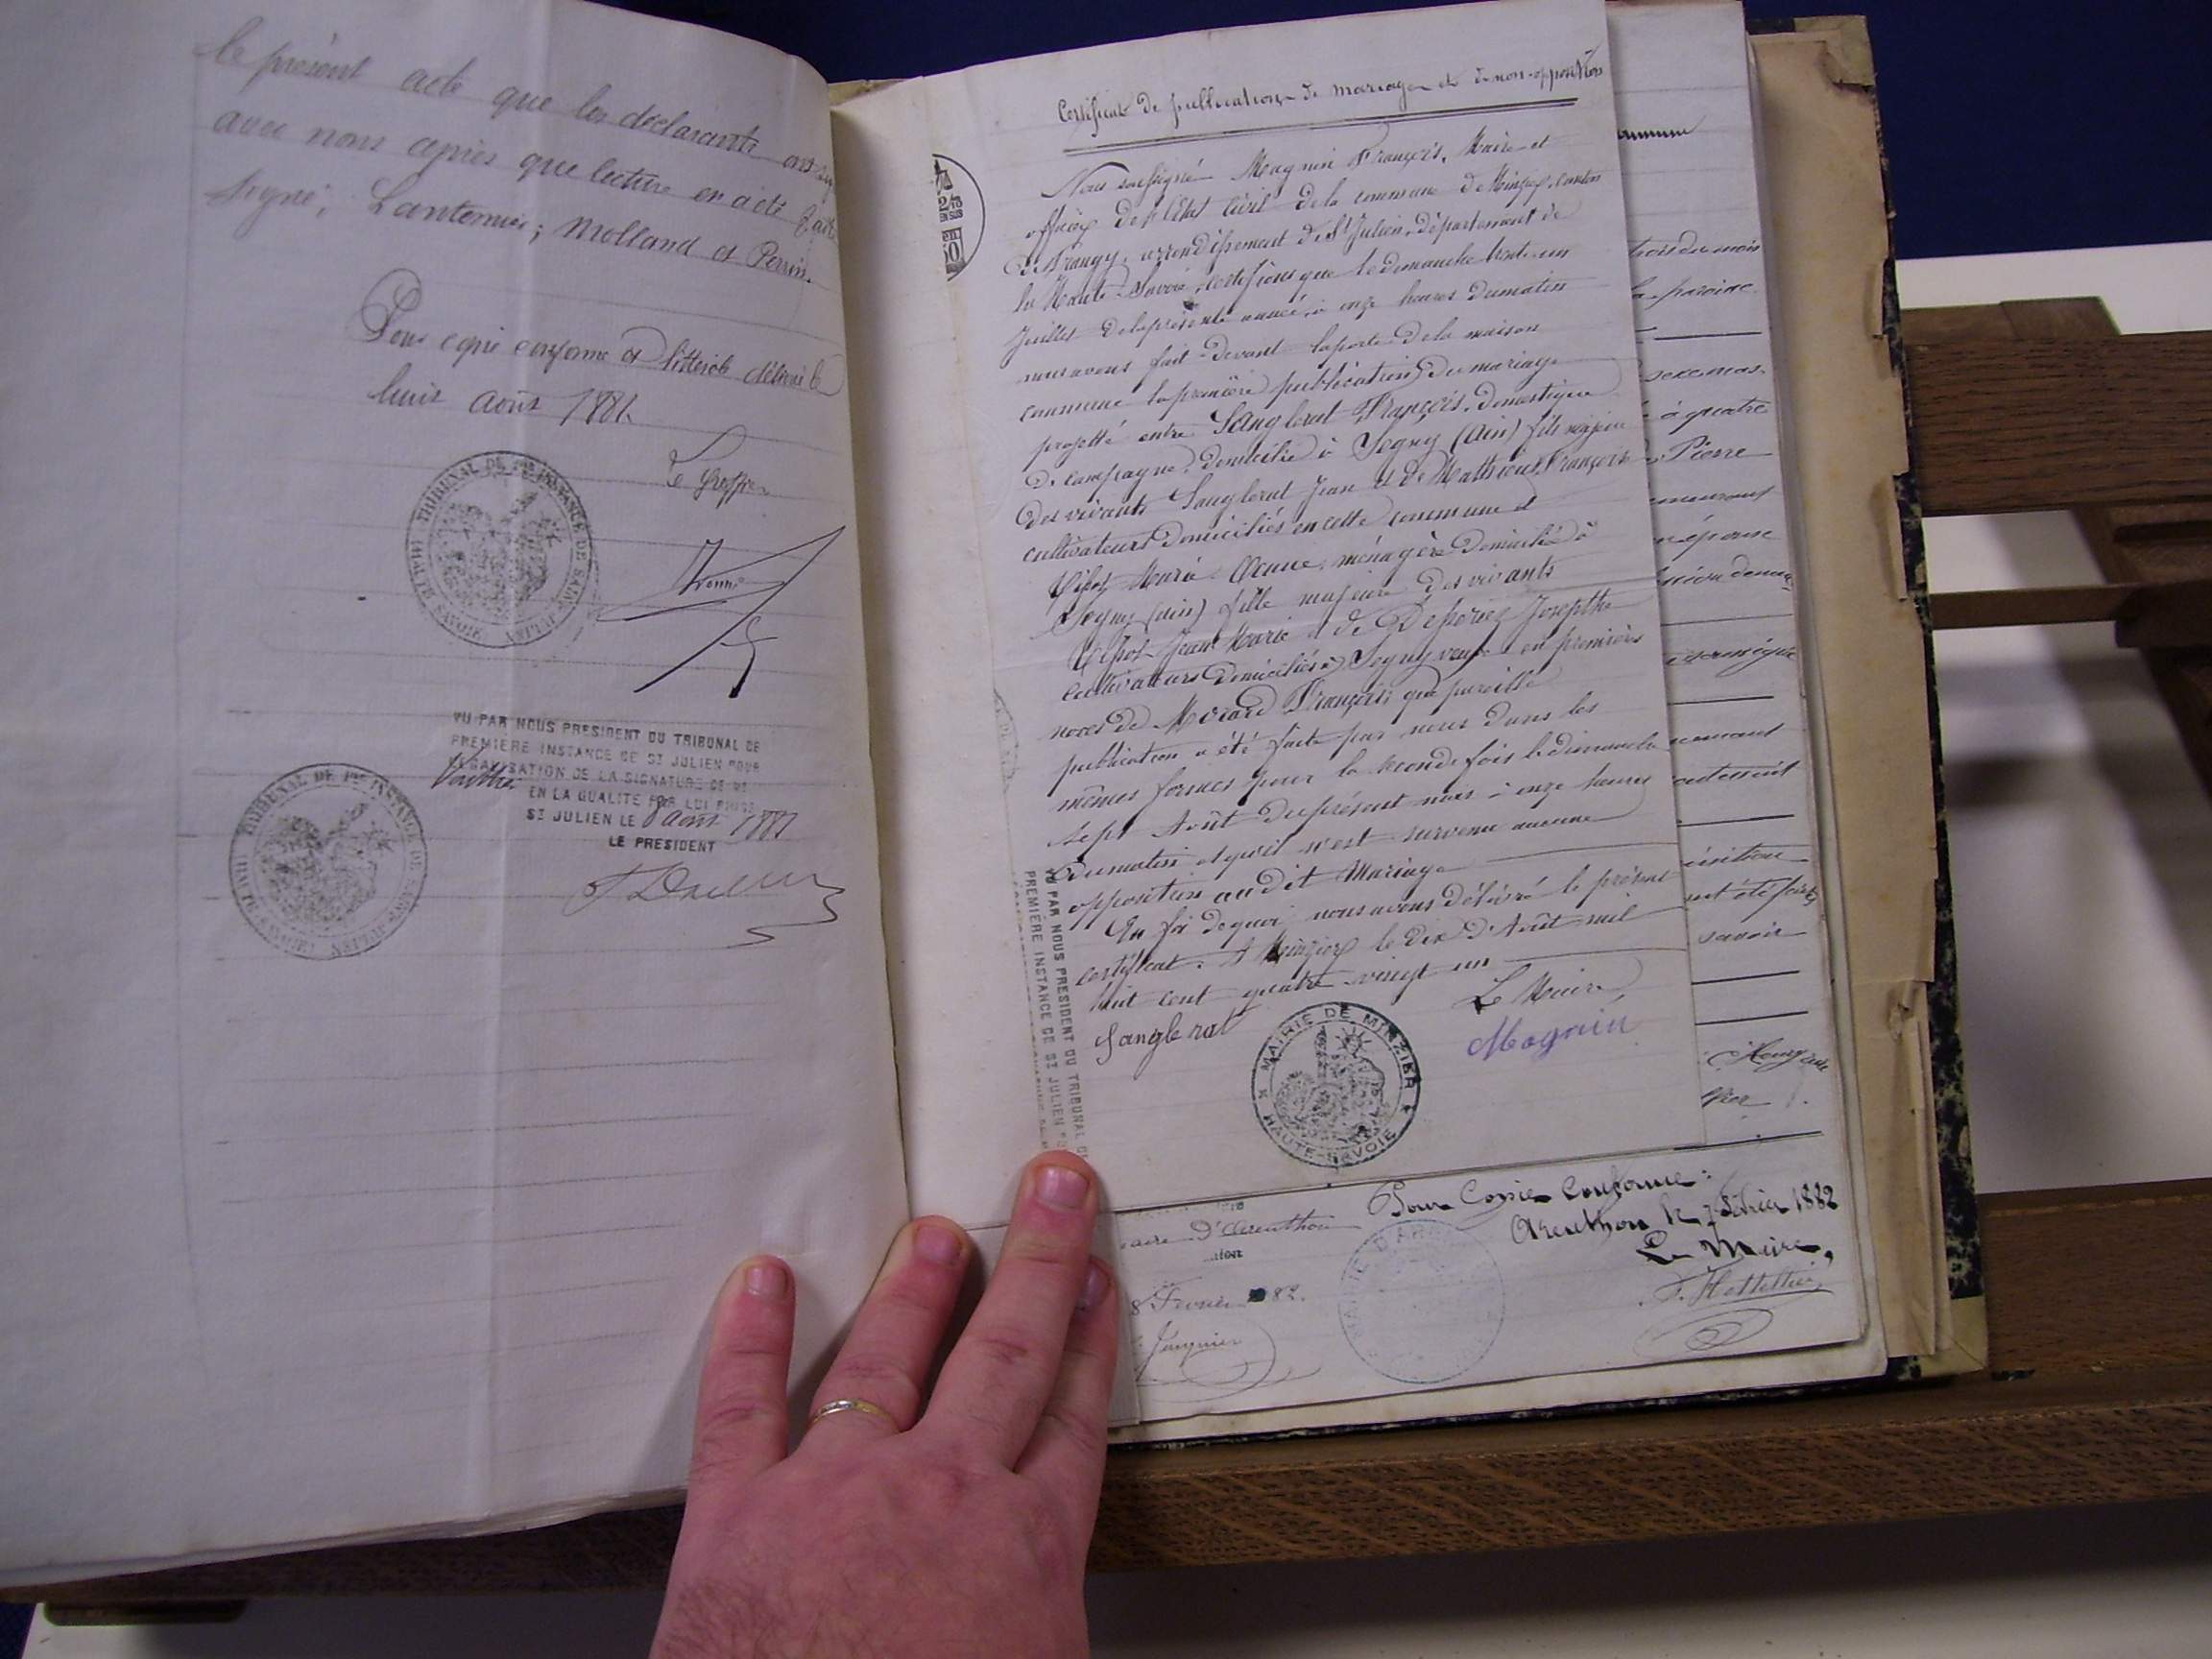 le présent acte que les déclarants ont
avec nous après que lecture en a été faite
signé; Lanternier; Molland et Perrin.
Pour copie conforme et littérale délivré le
huit août 1881
Le Greffier
TRIBUNAL DE 1re INSTANCE DE SAINT JULIEN
(HAUTE SAVOIE)
VU PAR NOUS PRESIDENT DU TRIBUNAL DE
PREMIERE INSTANCE DE ST JULIEN POUR
LEGALISATION DE LA SIGNATURE DE MR
EN LA QUALITE PAR LUI PRISE
ST JULIEN LE 8 août 1881
LE PRESIDENT
TRIBUNAL DE 1re INSTANCE DE SAINT JULIEN
(HAUTE SAVOIE)
Certificat de publications de mariage et de non-opposition
Nous soussigné Magnin François, Maire et
officier de l'état civil de la commune de Minzier, canton
de Frangy, arrondissement de St Julien, département de
la Haute-Savoie, certifions que le dimanche trente-un
Juillet de la présente année, à onze heures du matin
nous avons fait devant la porte de la maison
commune la première publication du mariage
projetté entre Sanglerat François, domestique
de campagne, domicilié à Segny (Ain) fils majeur
des vivants Sanglerat Jean et de Mathieu Françoise
cultivateurs domiciliés en cette commune et
Marie Anne, ménagère domiciliée à
Segny (Ain) fille majeure des vivants
Jean Marie et de Josepthe
cultivateurs domiciliés à Segny veuve en premières
noces de François, que pareille
publication a été faite par nous dans les
mêmes formes pour la seconde fois le dimanche
sept Août du présent mois à onze heures
du matin et qu'il n'est survenu aucune
opposition au dit Mariage
En foi de quoi nous avons délivré le présent
certificat. A Minzier le dix d'Août mil
huit cent quatre-vingt un
Le Maire,
Sanglerat
Magnin
MAIRIE DE MINZIER
HAUTE-SAVOIE
VU PAR NOUS PRESIDENT DU TRIBUNAL DE
PREMIERE INSTANCE DE ST JULIEN
2/10
EN SUS
trois du mois
la paroisse
sexe mas-
à quatre
Pierre
épouse
été faite
savoir
Pour Copie Conforme:
Arenthon le 7 Février 1882
Le Maire,
D'Arenthon
8 Février 1882.
MAIRIE D'AR